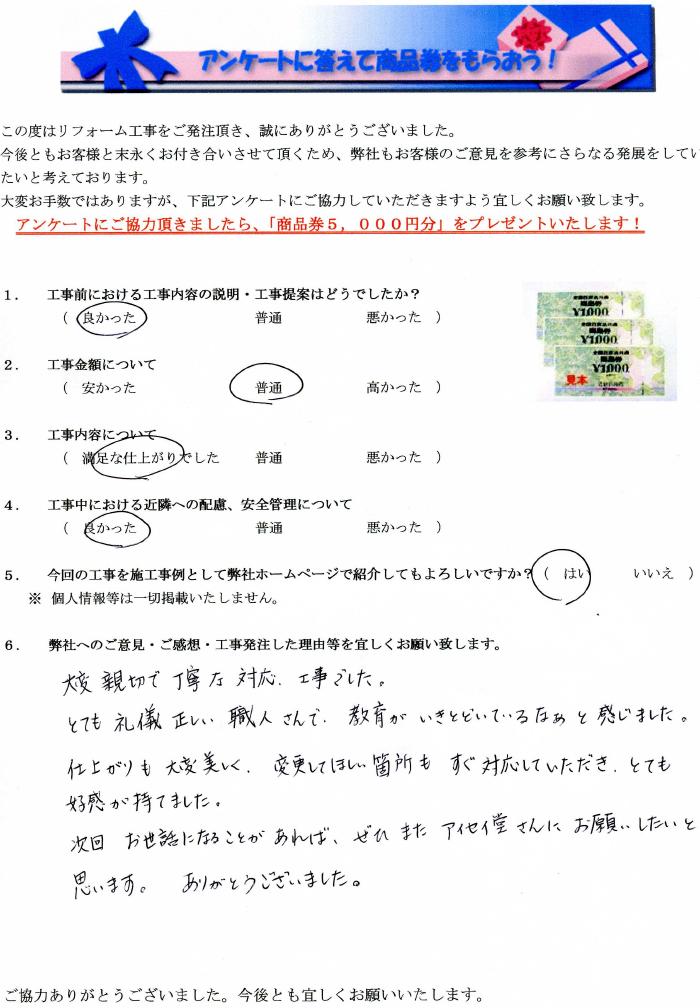 アンケートに答えて商品券をもらおう！
この度はリフォーム工事をご発注頂き、誠にありがとうございました。
今後ともお客様と末永くお付き合いさせて頂くため、弊社もお客様のご意見を参考にさらなる発展をしてい
たいと考えております。
大変お手数ではありますが、下記アンケートにご協力していただきますよう宜しくお願い致します。
アンケートにご協力頂きましたら、「商品券５，０００円分」をプレゼントいたします！
１． 工事前における工事内容の説明・工事提案はどうでしたか？
（ 良かった 普通 悪かった ）
２． 工事金額について
（ 安かった 普通 高かった ）
商品券
¥1,000
商品券
¥1,000
見本
３． 工事内容について
（ 満足な仕上がりでした 普通 悪かった ）
４． 工事中における近隣への配慮、安全管理について
（ 良かった 普通 悪かった ）
５． 今回の工事を施工事例として弊社ホームページで紹介してもよろしいですか？（ はい いいえ ）
※ 個人情報等は一切掲載いたしません。
６． 弊社へのご意見・ご感想・工事発注した理由等を宜しくお願い致します。
大変 親切で 丁寧な 対応、工事でした。
とても 礼儀 正しい 職人さんで、教育が いきとどいているなぁと 感じました。
仕上がりも 大変美しく、変更してほしい箇所も すぐ対応していただき、とても
好感が持てました。
次回 お世話になることがあれば、ぜひ また アイセイ堂さんに お願いしたいと
思います。 ありがとうございました。
ご協力ありがとうございました。今後とも宜しくお願いいたします。